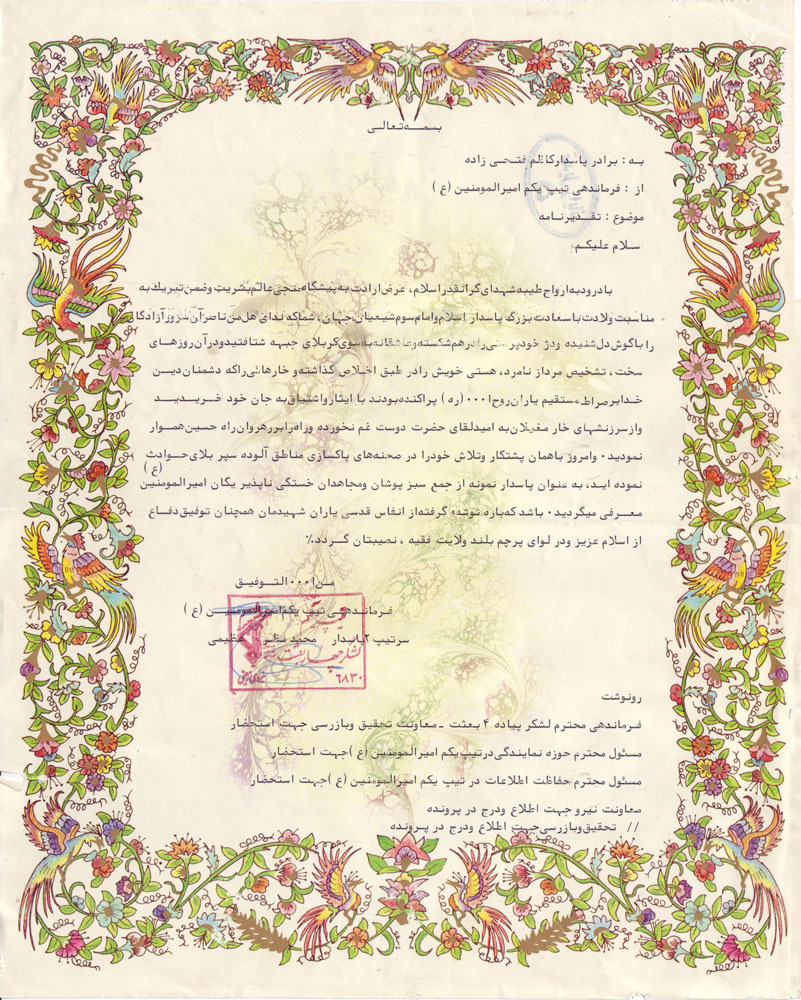 بسمه تعالی
به : برادر پاسدار کاظم فتحی زاده
از : فرماندهی تیپ یکم امیرالمومنین ( ع )
موضوع : تقدیرنامه
سلام علیکم
با درود به ارواح طیبه شهدای گرانقدر اسلام ، عرض ارادت به پیشگاه منجی عالم بشریت وضمن تبریك به
مناسبت ولادت با سعادت بزرگ پاسدار اسلام وامام سوم شیعیان جهان ، شما که ندای هل من ناصر آن سرور آزادگان
را با گوش دل شنیده ودژ خود پرستی را درهم شکسته وعاشقانه به سوی کربلای جبهه شتافتید ودر آن روزهای
سخت ، تشخیص مرد از نامرد ، هستی خویش را در طبق اخلاص گذاشته و خارهائی راکه دشمنان دین
خدا بر صراط مستقیم یاران روح ا۰۰۰ (ره ) پراکنده بودند با ایثار واشتیاق به جان خود خریدید
واز سرزنشهای خار مغیلان به امید لقای حضرت دوست غم نخورده وراه را بر رهروان راه حسین هموار
نمودید ۰ وامروز با همان پشتکار وتلاش خودرا در صحنه های پاکسازی مناطق آلوده سپر بلای حوادث
نموده اید ، به عنوان پاسدار نمونه از جمع سبز پوشان ومجاهدان خستگی ناپذیر یگان امیرالمومنین (ع )
معرفی میگردید ۰ باشد که با ره توشه گرفته از انفاس قدسی یاران شهیدمان همچنان توفیق دفاع
از اسلام عزیز ودر لوای پرچم بلند ولایت فقیه ، نصیبتان گردد ٪
من ا۰۰۰ التوفیق
فرماندهی تیپ یکم امیرالمومنین ( ع )
سرتیپ ۲ پاسدار محمد نظر عظیمی
۶۸۳۰
رونوشت
فرماندهی محترم لشکر پیاده ۴ بعثت - معاونت تحقیق وبازرسی جهت استحضار
مسئول محترم حوزه نمایندگی در تیپ یکم امیرالمومنین ( ع ) جهت استحضار
مسئول محترم حفاظت اطلاعات در تیپ یکم امیرالمومنین ( ع ) جهت استحضار
معاونت نیرو جهت اطلاع ودرج در پرونده
// تحقیق وبازرسی جهت اطلاع ودرج در پرونده